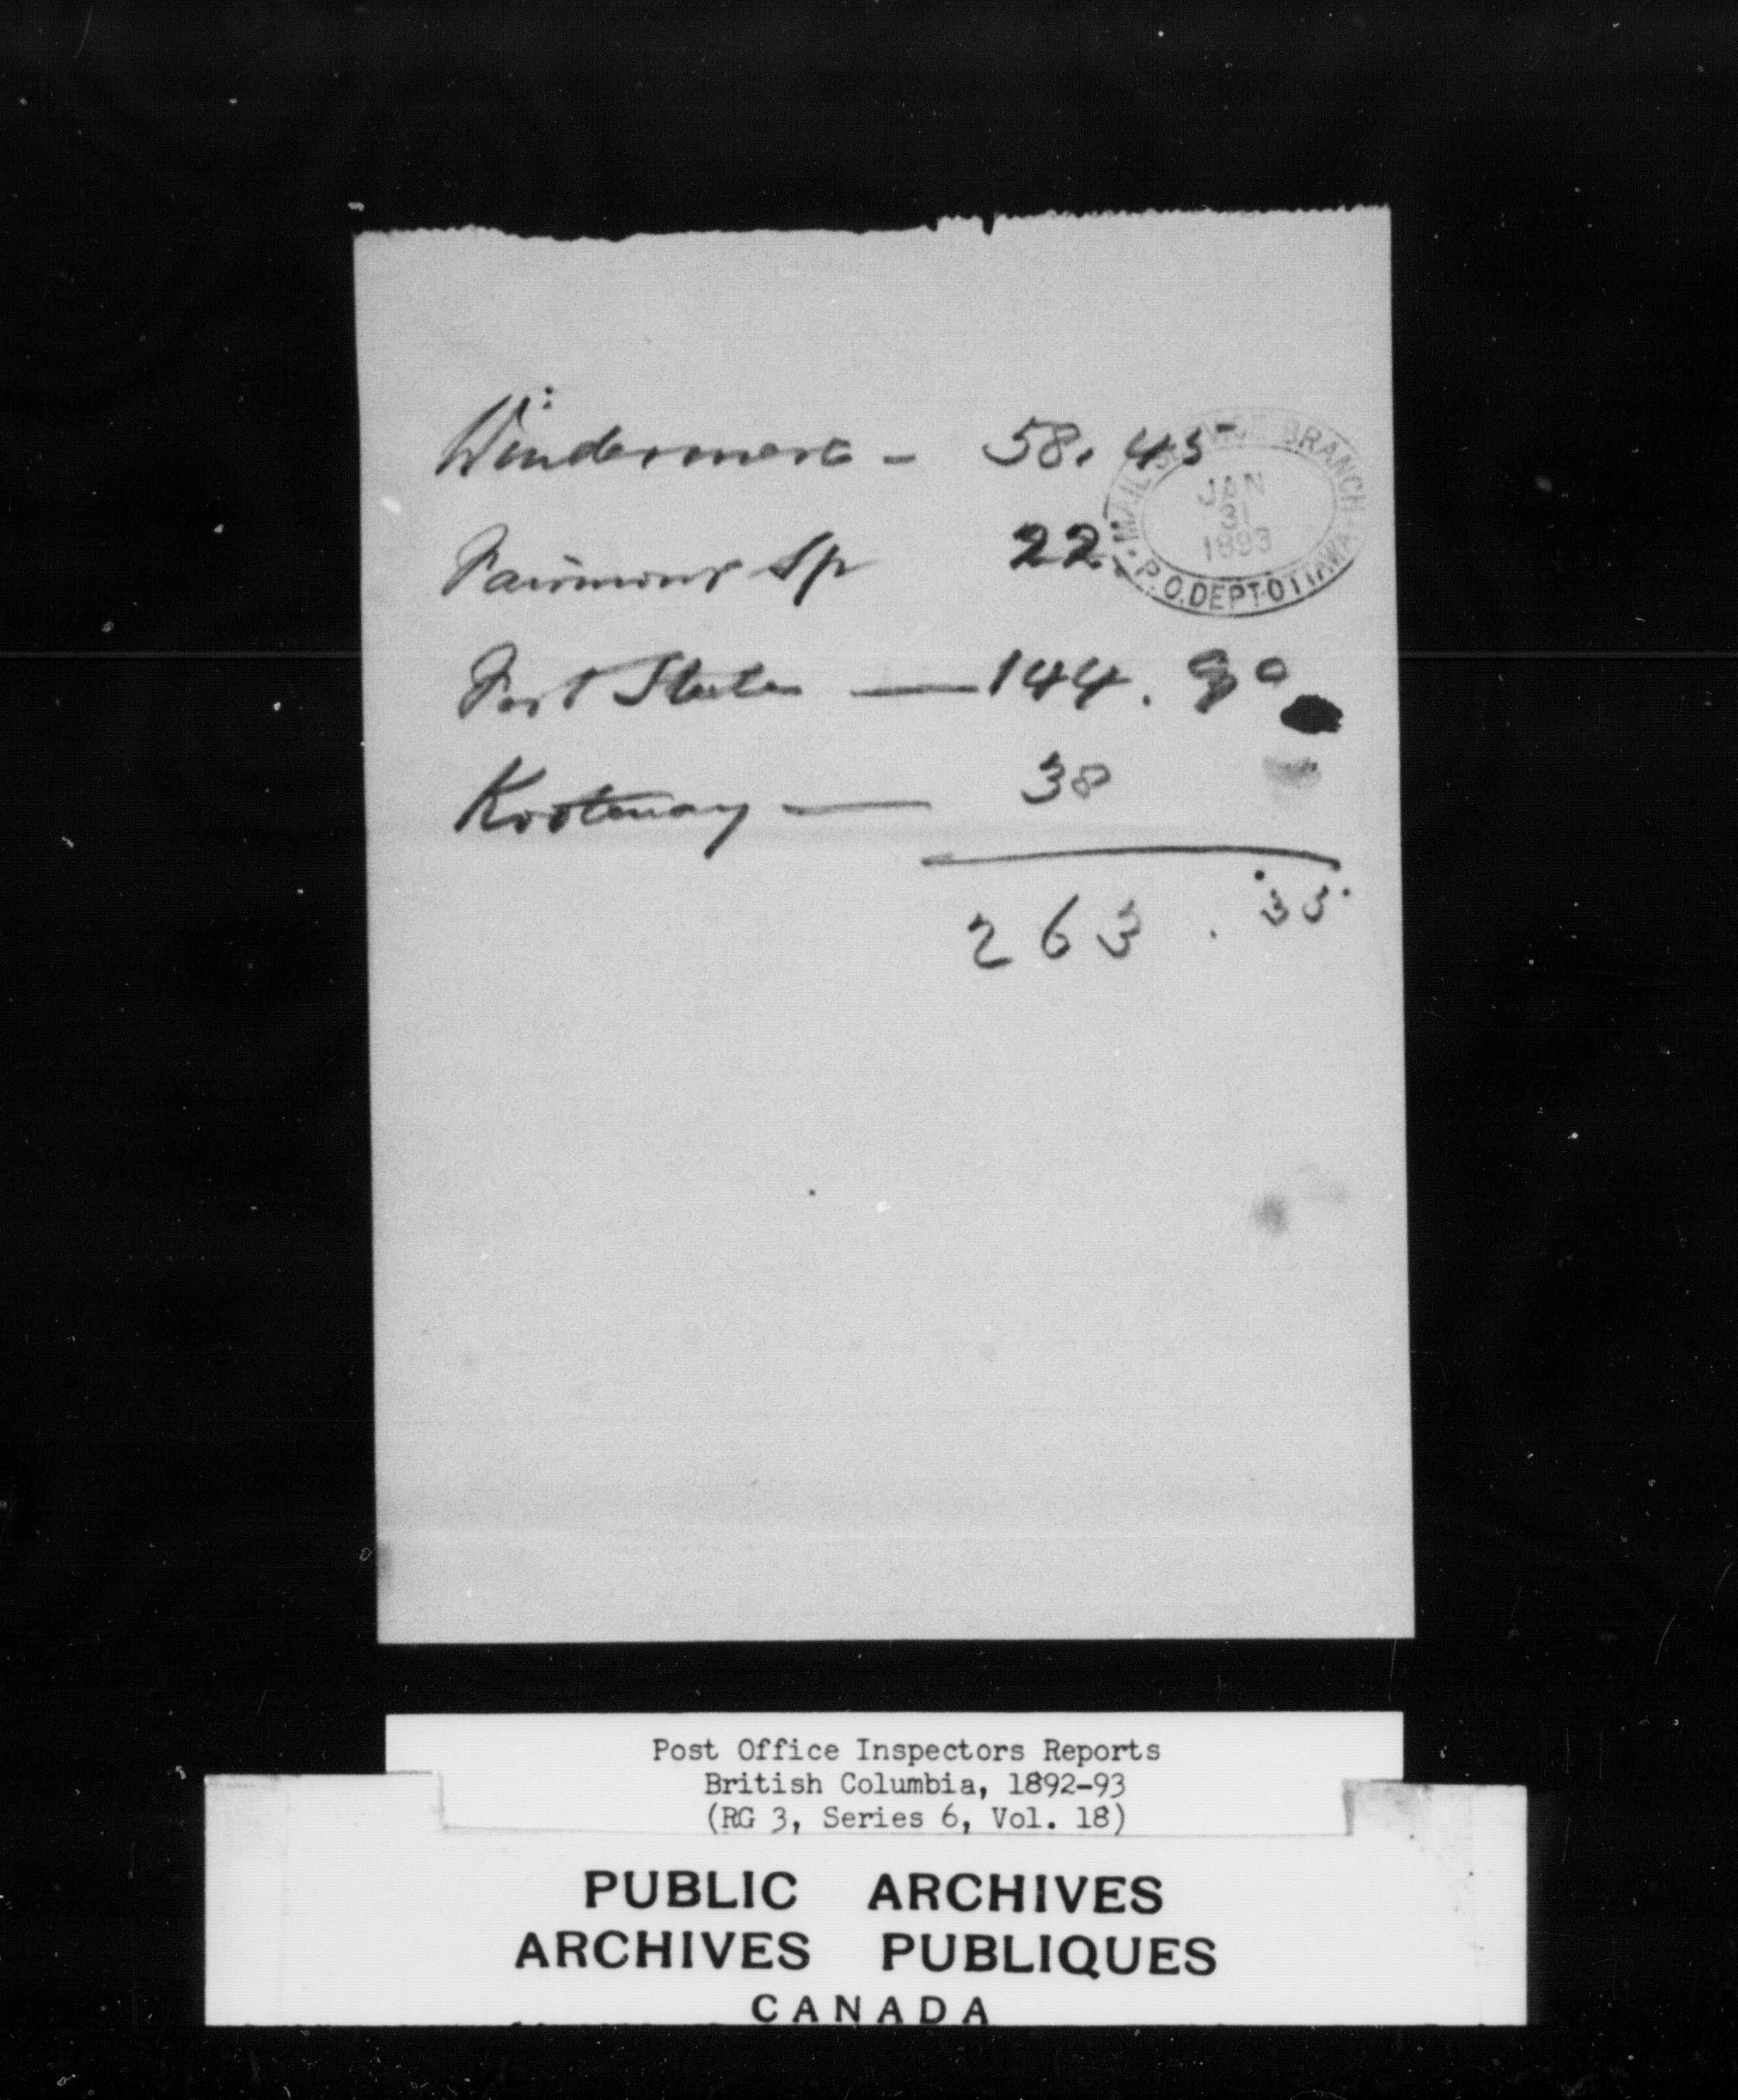 Windermere - 58.45
Fairmont Sp 22
Fort Steele — 144.90
Kootenay — 38
263.35
MAIL SERVICE BRANCH
JAN
31
1893
P.O. DEPT. OTTAWA
Post Office Inspectors Reports
British Columbia, 1892-93
(RG 3, Series 6, Vol. 18)
PUBLIC ARCHIVES
ARCHIVES PUBLIQUES
CANADA